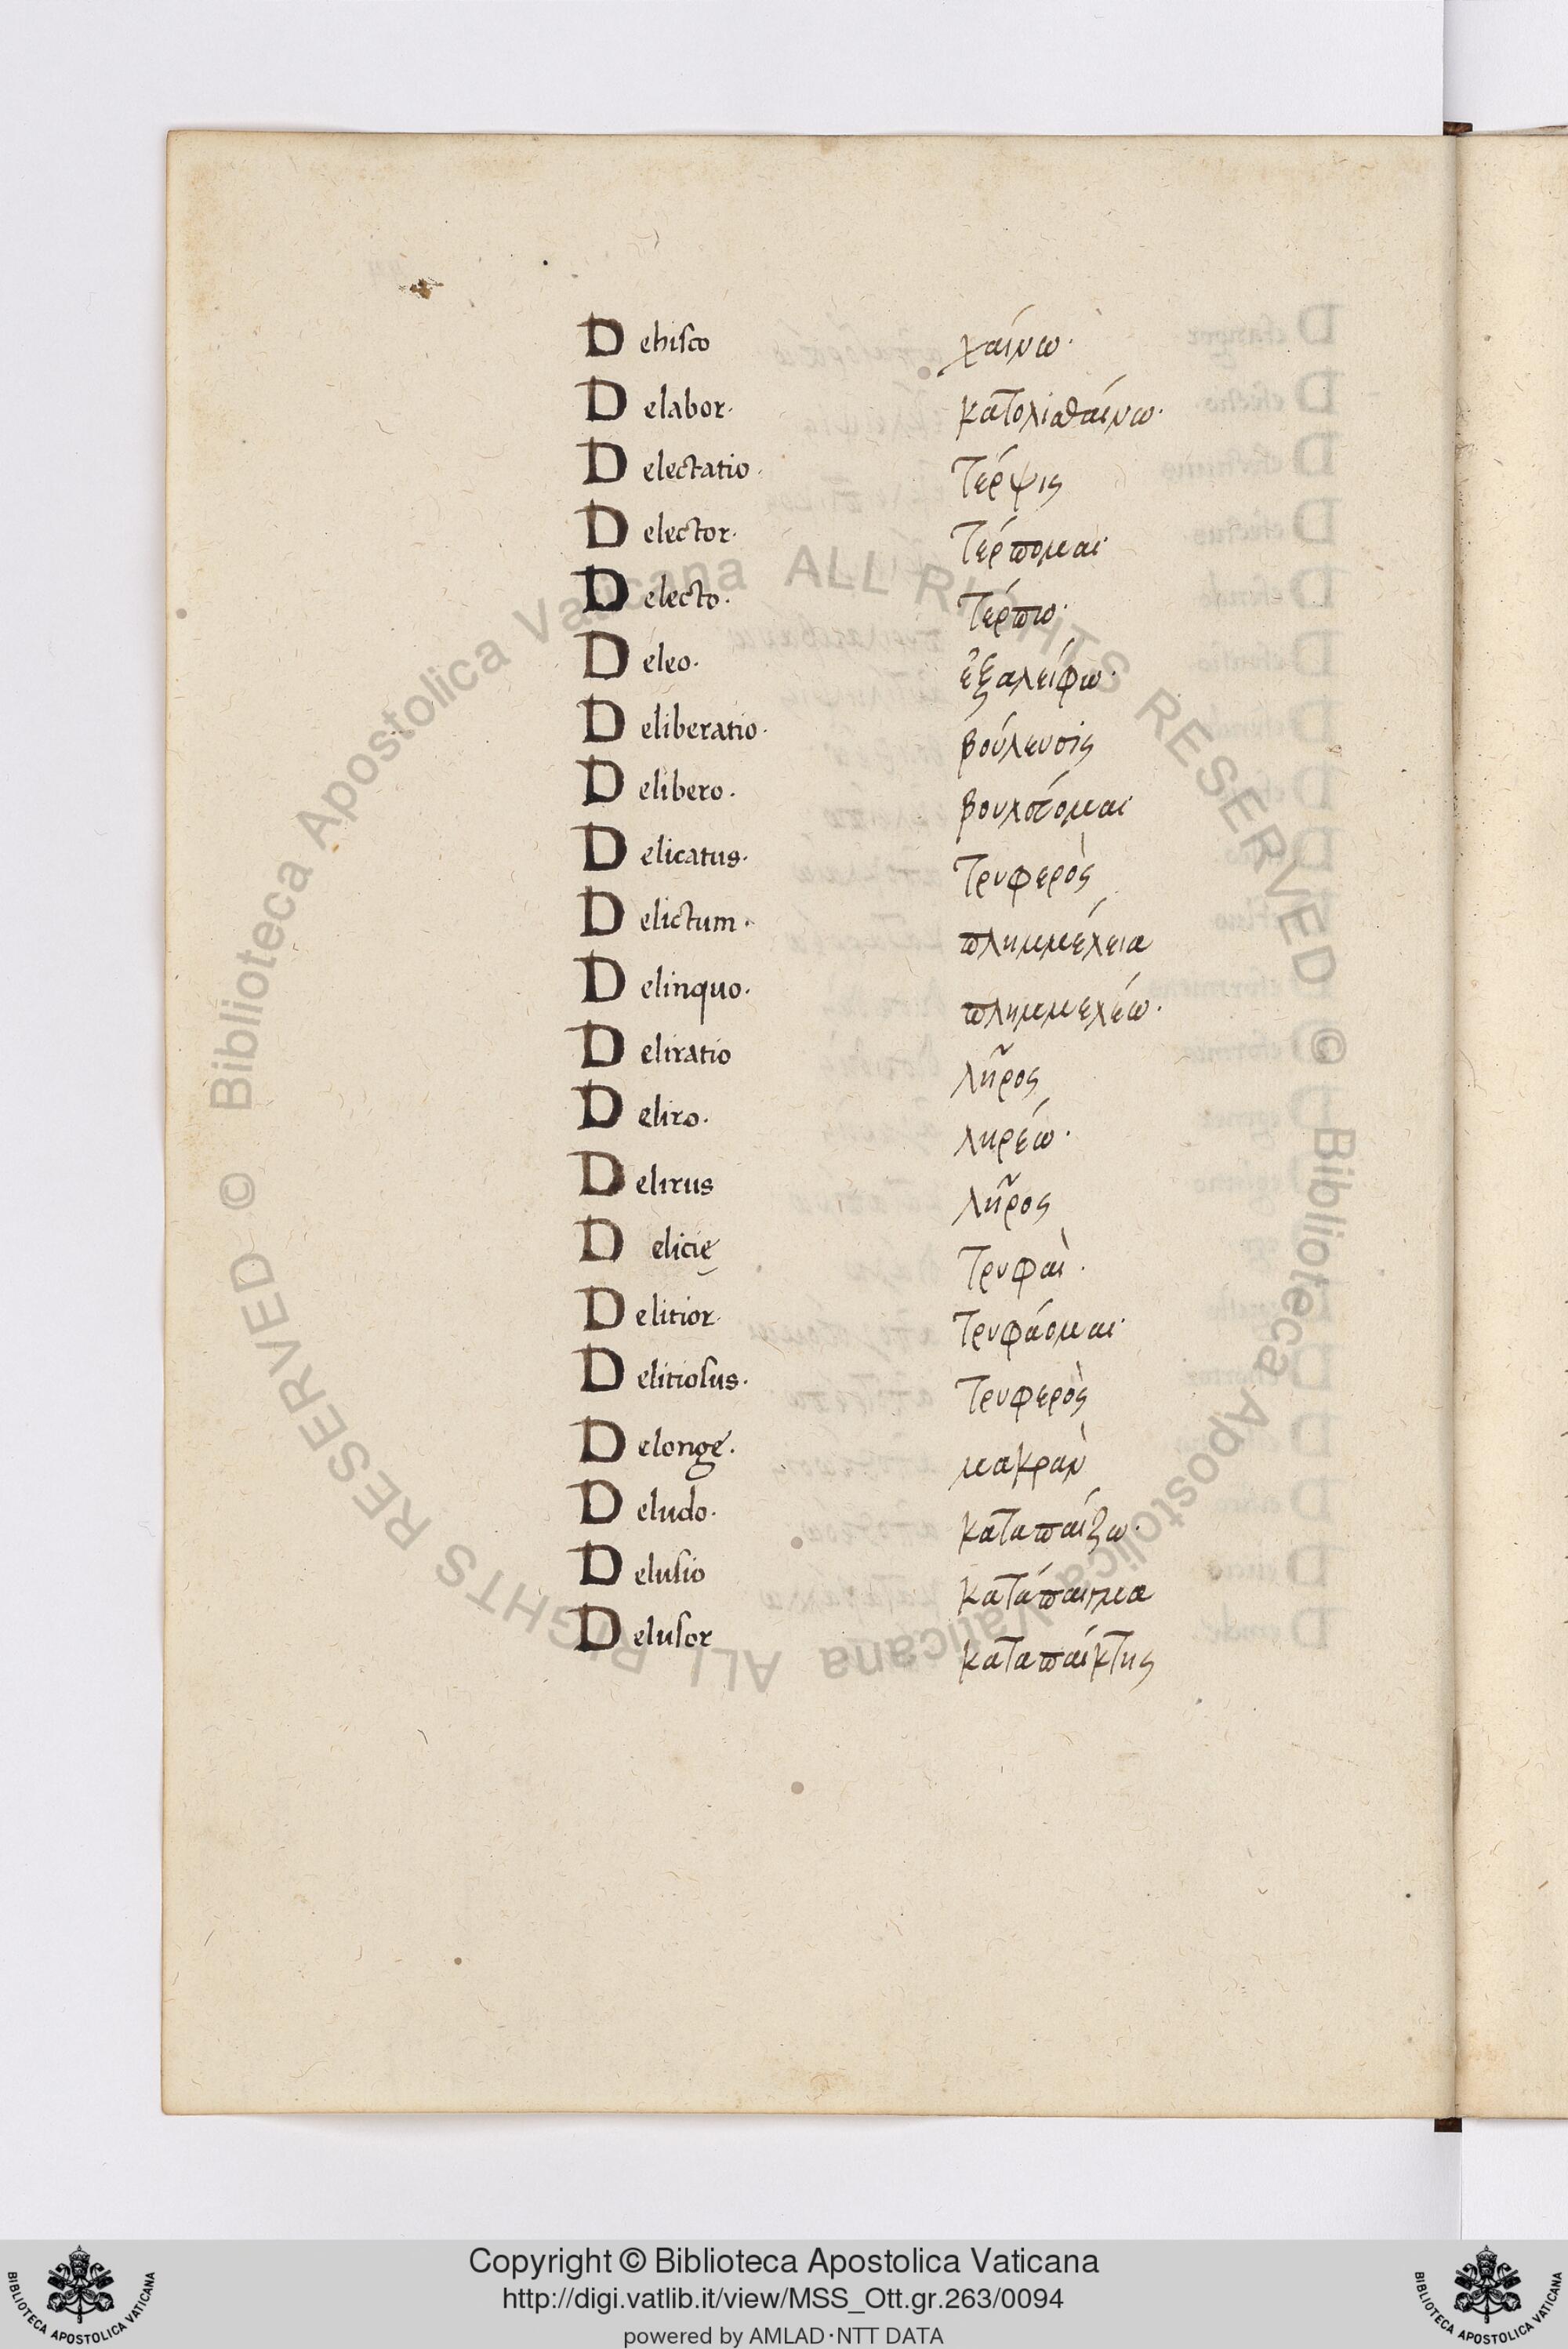 Dehisco χαίνω·
Delabor· κατολισθαίνω·
Delectatio· τέρψις
Delector· τέρπομαι·
Delecto· τέρπω·
Deleo· ἐξαλείφω·
Deliberatio· βούλευσις
Delibero· βουλεύομαι·
Delicatus· τρυφερὸς
Delictum· πλημμέλεια
Delinquo· πλημμελέω·
Deliratio λῆρος
Deliro· ληρέω·
Delirus λῆρος
Delicię τρυφαὶ·
Delitior· τρυφάομαι·
Delitiosus· τρυφερὸς
Delongé· μακρὰν
Deludo· καταπαίζω·
Delusio κατάπαιγμα
Delusor καταπαίκτης
© Biblioteca Apostolica Vaticana ALL RIGHTS RESERVED © Biblioteca Apostolica Vaticana ALL RIGHTS RESERVED
Copyright © Biblioteca Apostolica Vaticana
http://digi.vatlib.it/view/MSS_Ott.gr.263/0094
powered by AMLAD·NTT DATA
BIBLIOTECA APOSTOLICA VATICANA
BIBLIOTECA APOSTOLICA VATICANA